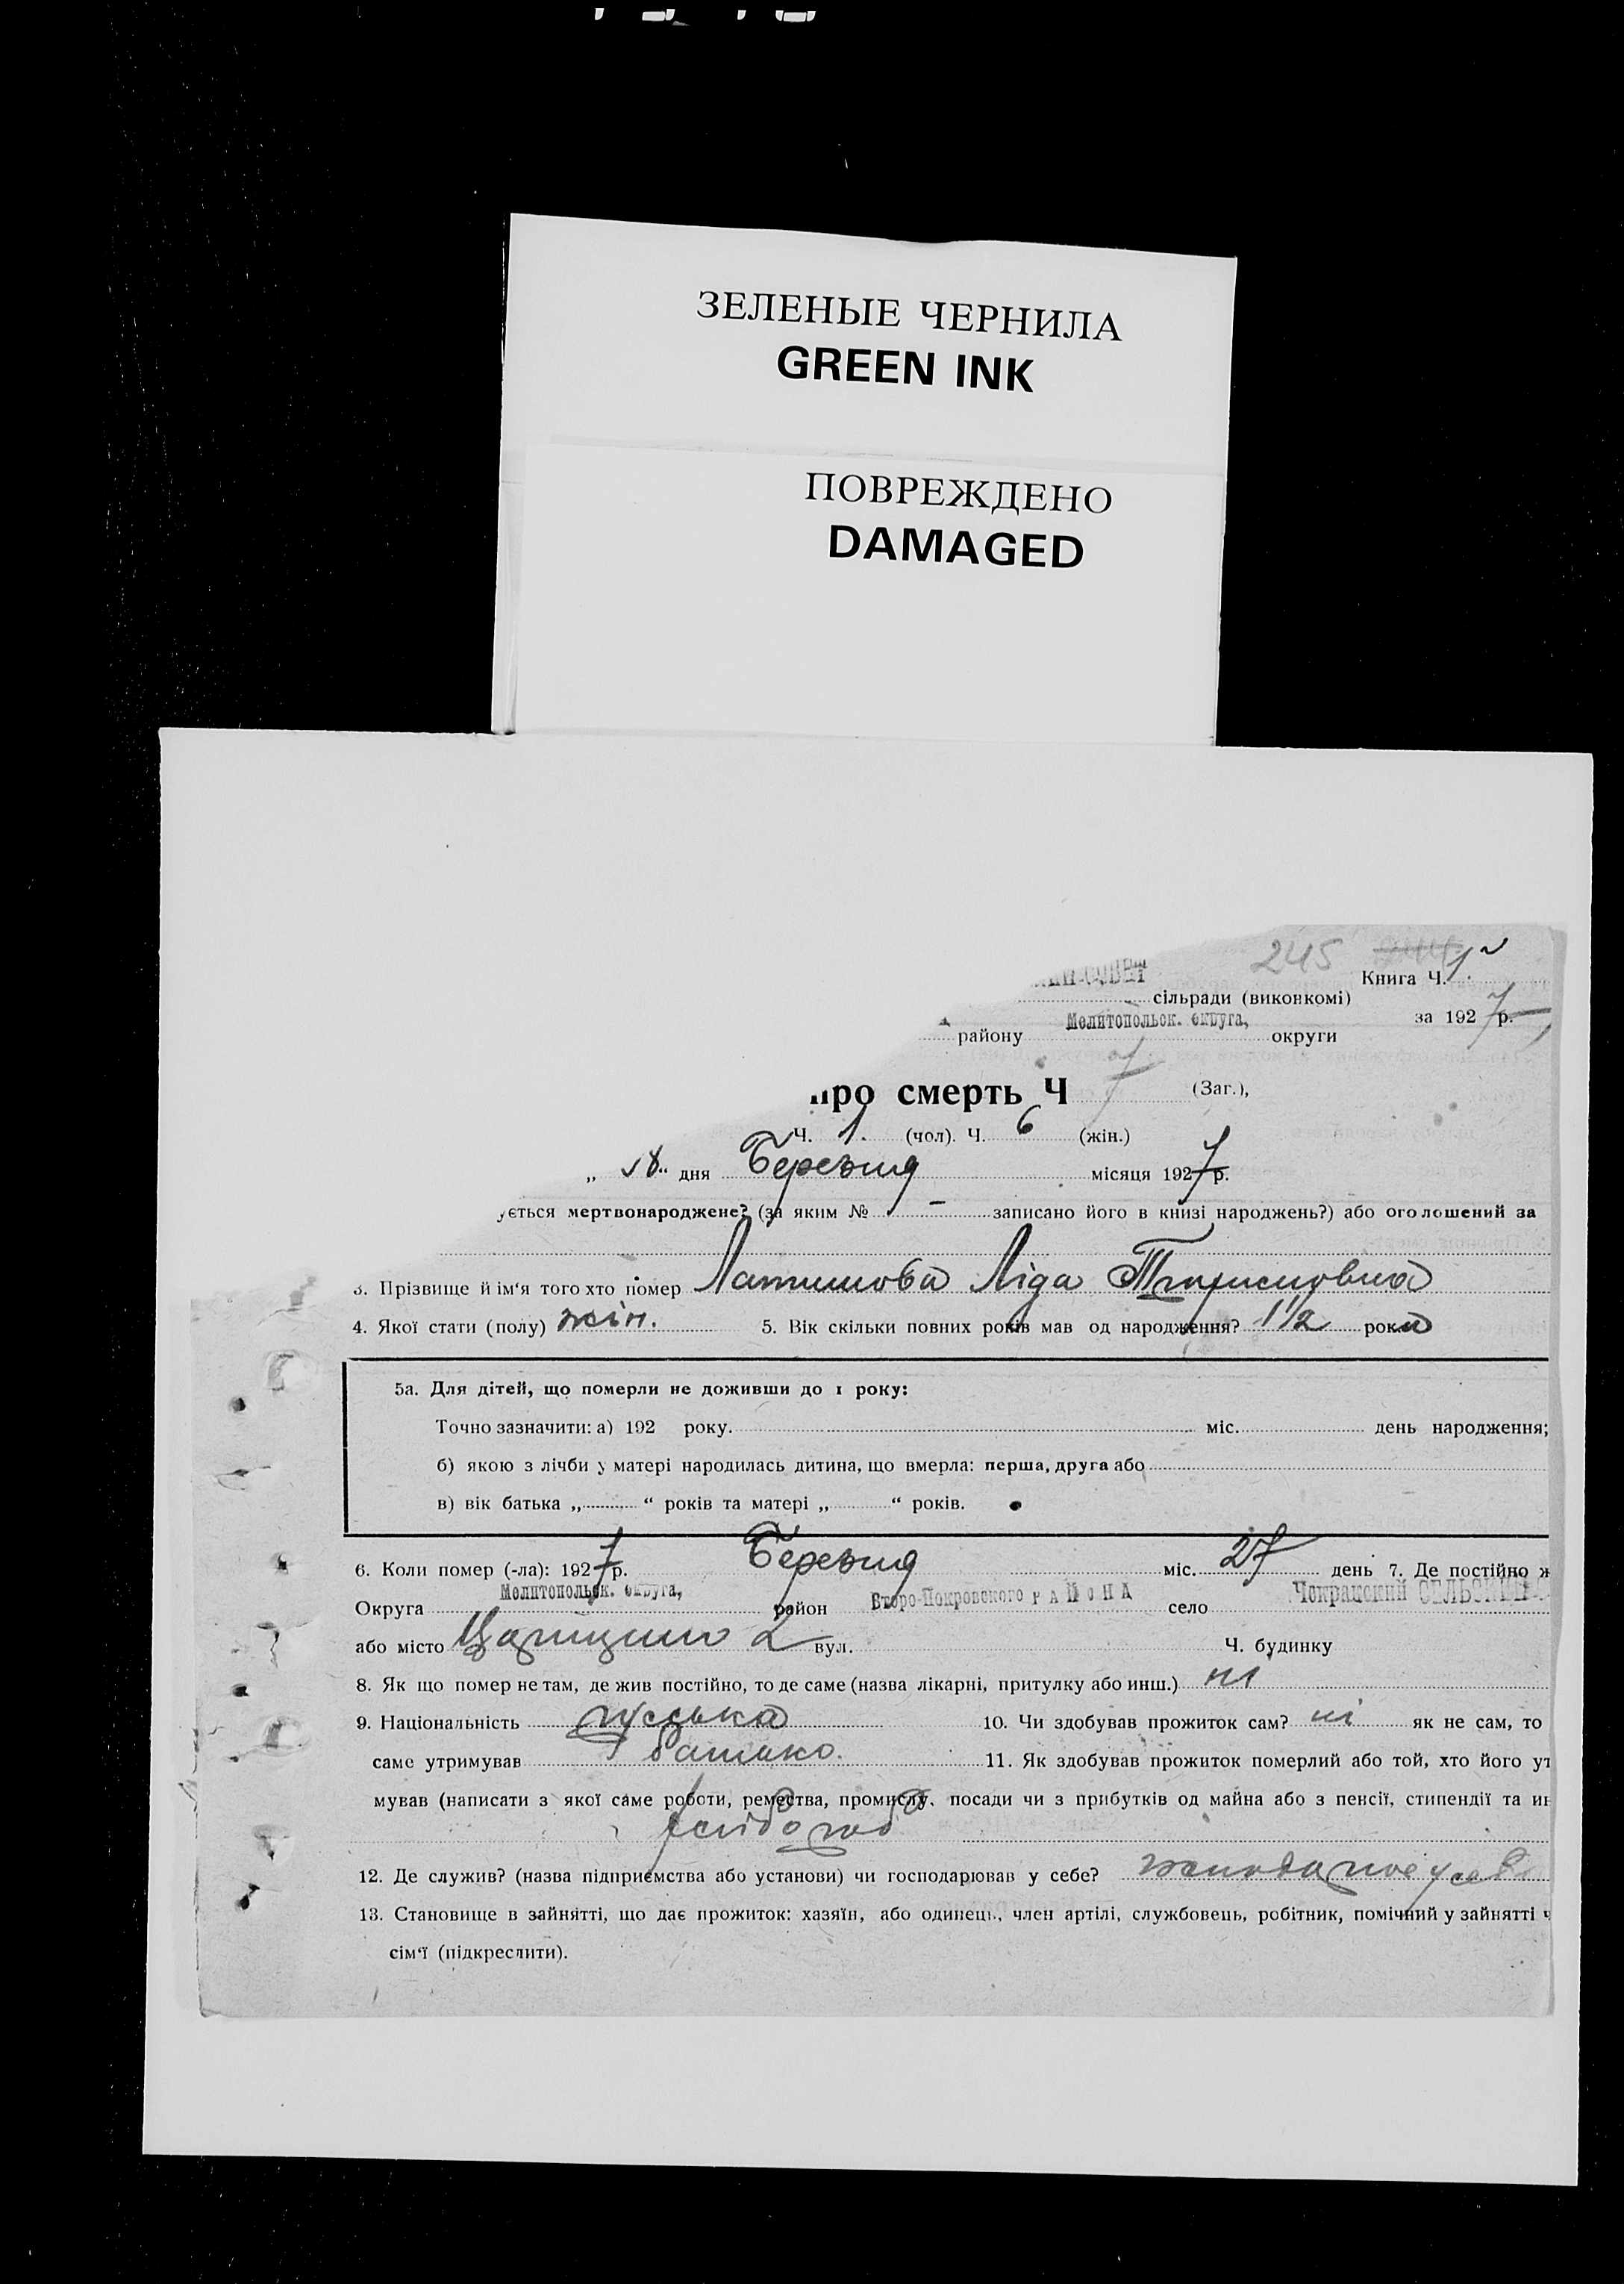 ЗЕЛЕНЫЕ ЧЕРНИЛА
GREEN INK
ПОВРЕЖДЕНО
DAMAGED
245
Книга Ч. 1
сільради (виконкомі)
району Мелитопольск. округа, округи за 1927 р.
про смерть Ч 7 (Заг.),
Ч. 1. (чол). Ч. 6 (жін.)
дня Березня місяця 1927 р.
ується мертвонароджене? (за яким № – записано його в книзі народжень?) або оголошений за
3. Прізвище й ім'я того хто помер Ліда
4. Якої стати (полу) жін. 5. Вік скільки повних років мав од народження? 1 1/2 рока
5а. Для дітей, що померли не доживши до 1 року:
Точно зазначити: а) 192 року. міс. день народження;
б) якою з лічби у матері народилась дитина, що вмерла: перша, друга або
в) вік батька „ “ років та матері „ “ років.
6. Коли помер (-ла): 1927 р. Березня міс. 27 день 7. Де постійно ж
Округа Мелитопольск. округа, район Второ-Покровского РАЙОНА село Чокракский
або місто Царицино 2 вул. Ч. будинку
8. Як що помер не там, де жив постійно, то де саме (назва лікарні, притулку або инш.) ні
9. Національність руська 10. Чи здобував прожиток сам? ні як не сам, то
саме утримував батько. 11. Як здобував прожиток померлий або той, хто його ут
мував (написати з якої саме роботи, ремества, промислу, посади чи з прибутків од майна або з пенсії, стипендії та ин
хлібороб
12. Де служив? (назва підприємства або установи) чи господарював у себе?
13. Становище в зайнятті, що дає прожиток: хазяїн, або одинець, член артілі, службовець, робітник, помічний у зайнятті ч
сім'ї (підкреслити).